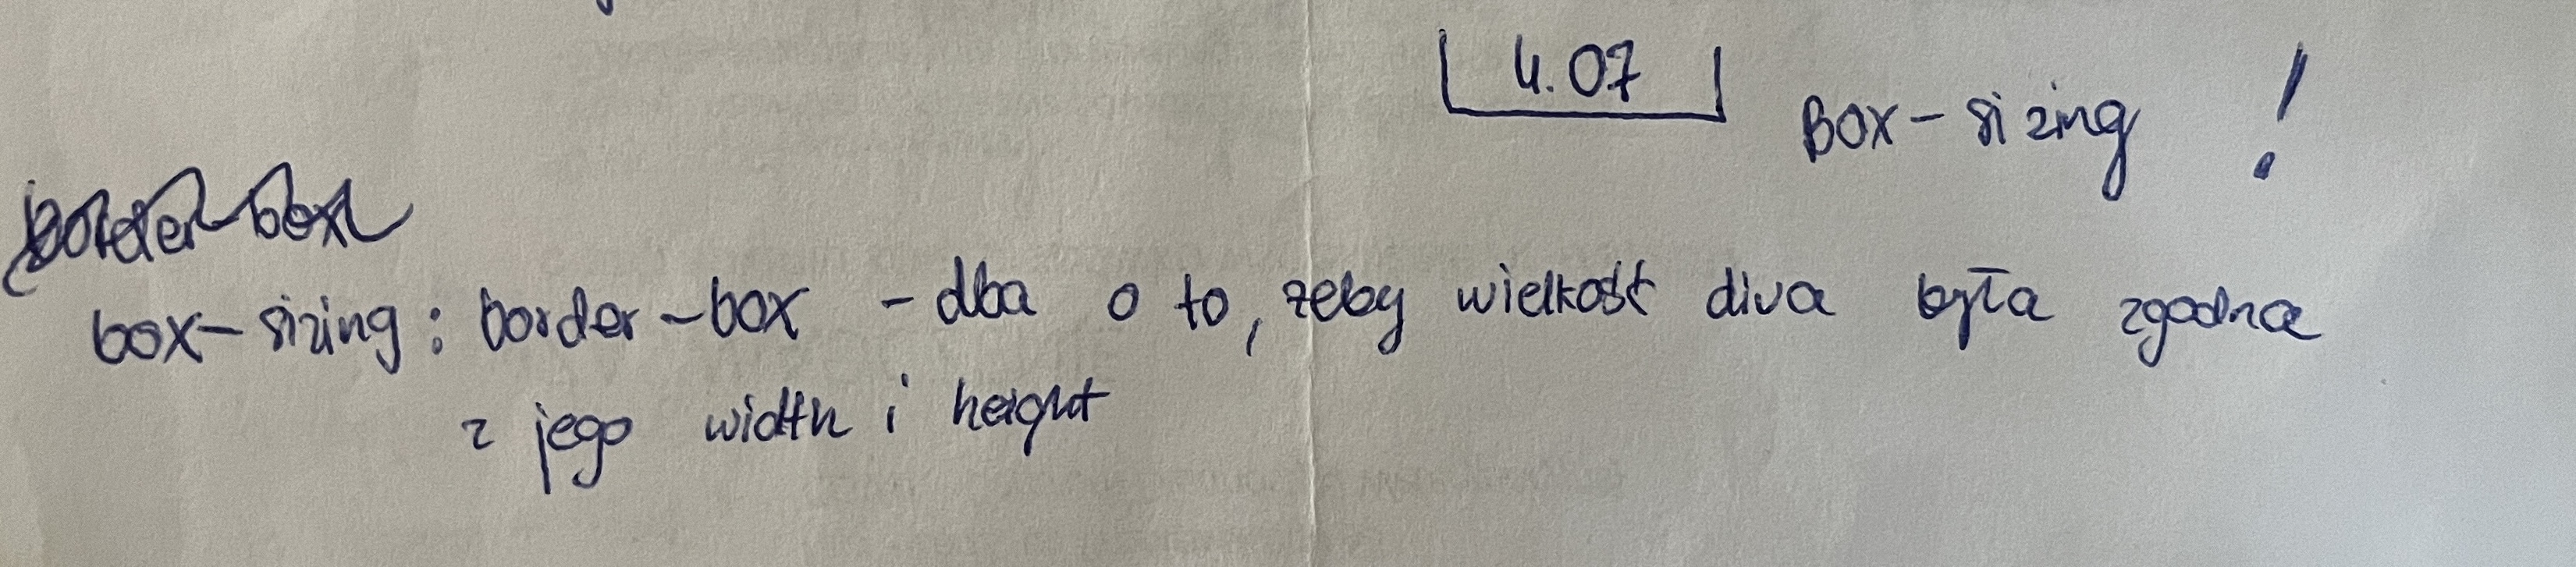 4.07 Box-sizing !
border-box
box-sizing: border-box - dba o to, żeby wielkość diva była zgodna
z jego width i height